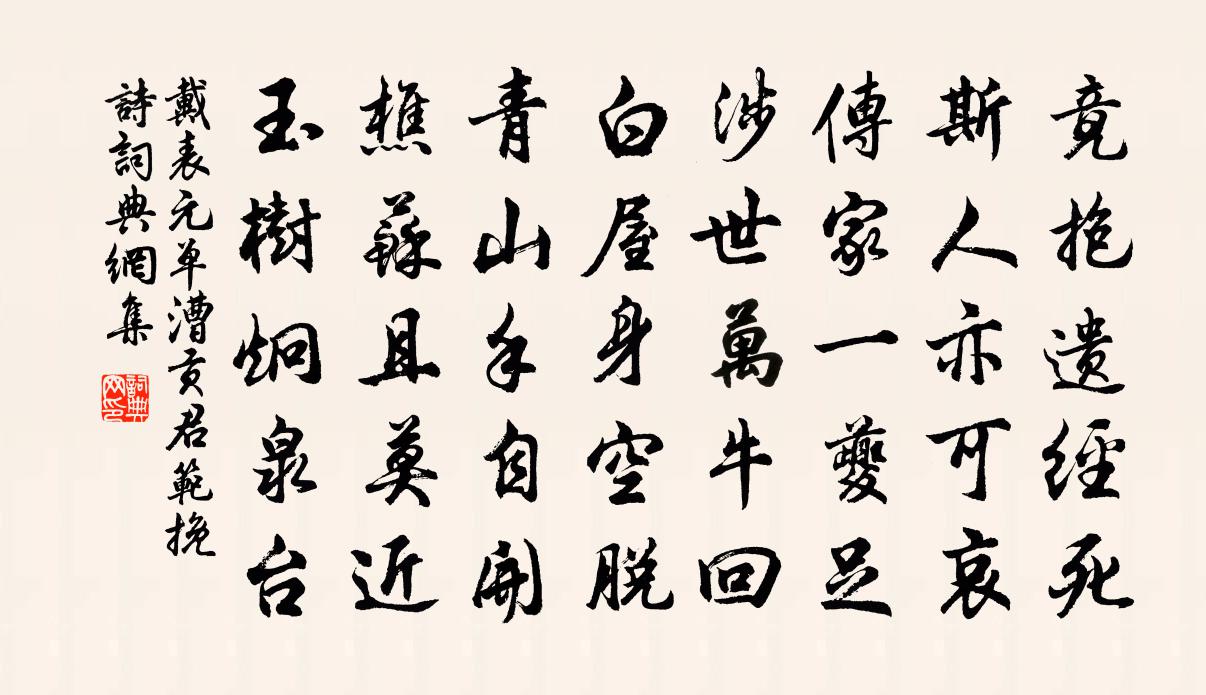 竟抱遗經死
斯人亦可哀
傳家一夔足
涉世萬牛回
白屋身空脱
青山手自開
樵蘇且莫近
玉樹炯泉台
戴表元单漕贡君範挽
詩詞典網集
詞典网印